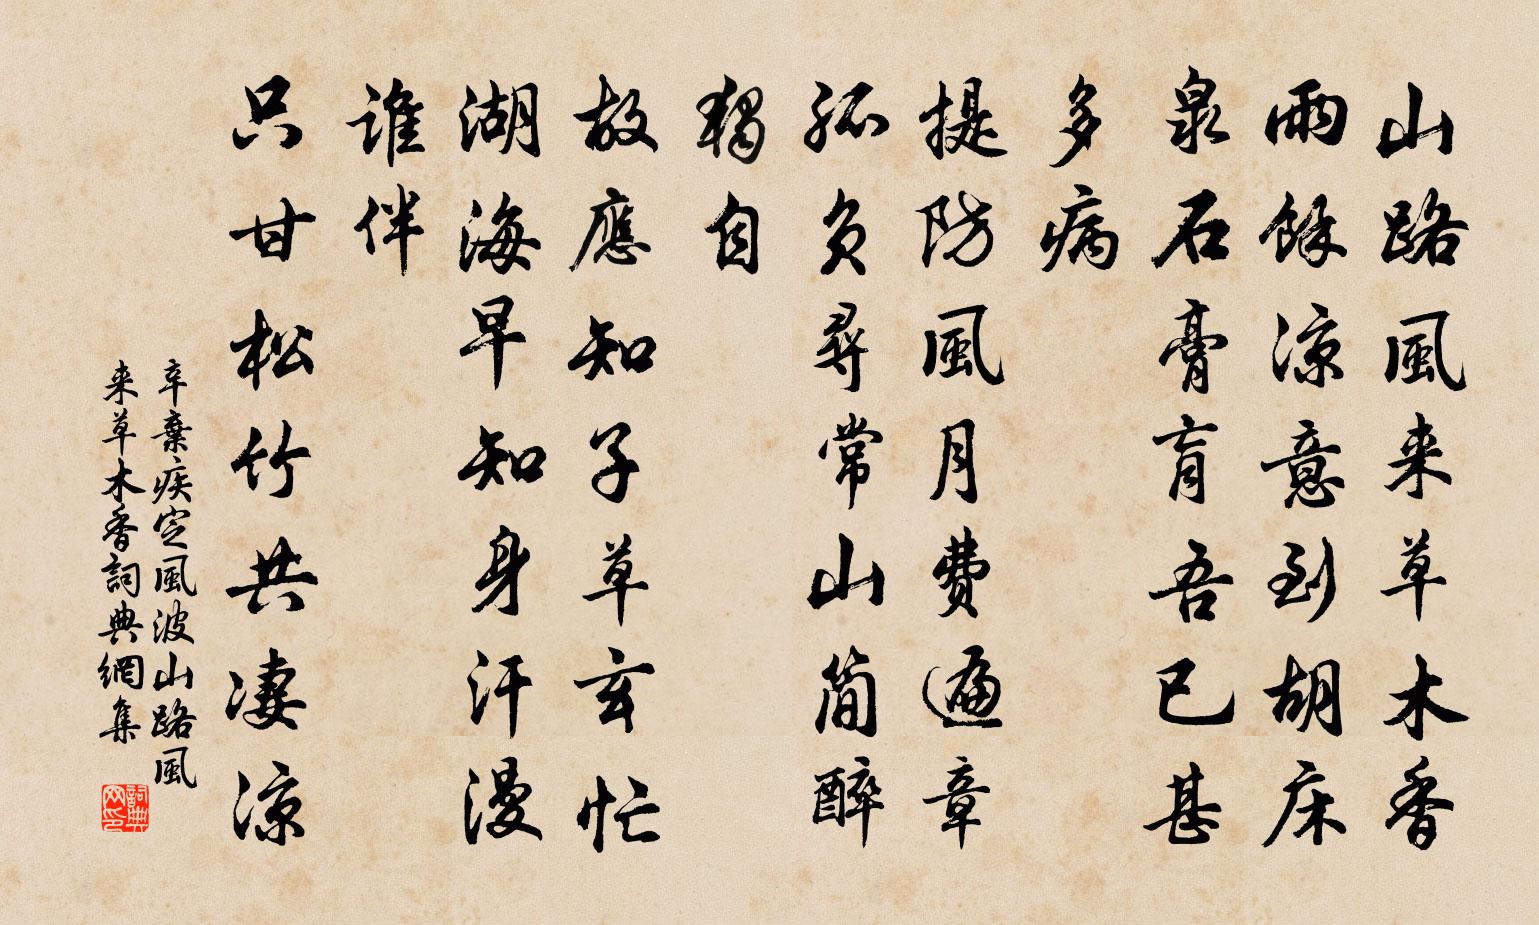 山路風来草木香
雨餘涼意到胡床
泉石膏肓吾已甚
多病
提防風月費遍章
孤負尋常山簡醉
獨自
故應知子草玄忙
湖海早知身汗漫
誰伴
只甘松竹共凄涼
辛棄疾定風波山路風
来草木香詞典網集
詞典
网印